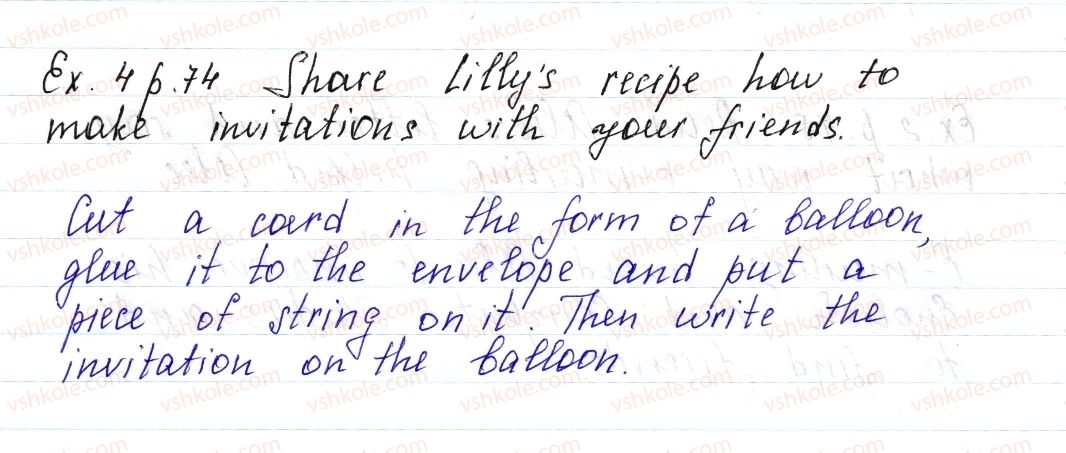 Ex. 4 p. 74 Share Lilly's recipe how to
make invitations with your friends.
Cut a card in the form of a balloon,
glue it to the envelope and put a
piece of string on it. Then write the
invitation on the balloon.